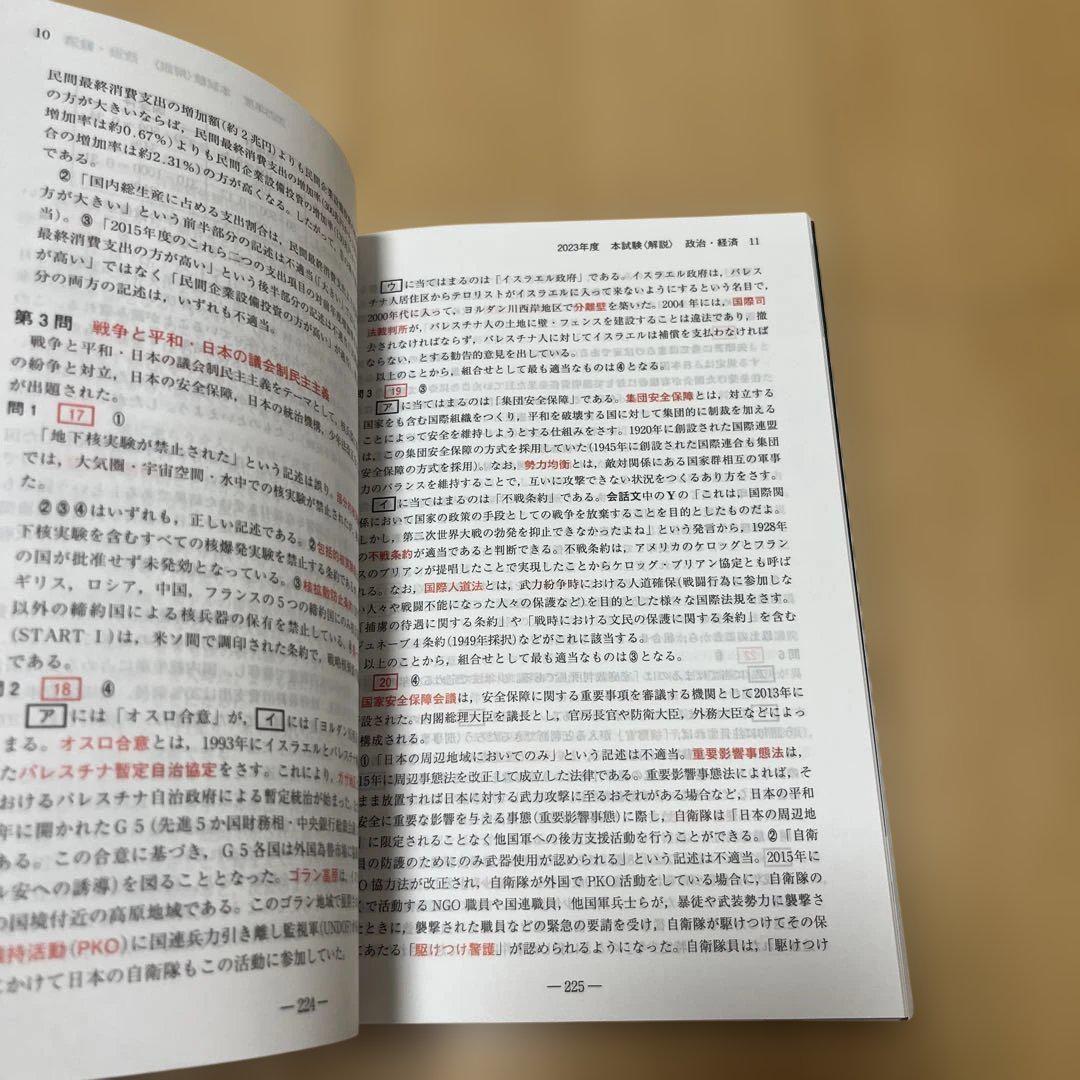 10
民間最終消費支出の増加額(約2兆円)よりも民間企業設
の方が大きいならば，民間最終消費支出の増加率
増加率は約0.67%)よりも民間企業設備投資の増加率
合の増加率は約2.31%)の方が高くなる。したがって，
である。
②「国内総生産に占める支出割合は，民間最終消費
方が大きい」という前半部分の記述は不適当
当)。③「2015年度のこれら二つの支出項目の対前年度増加
最終消費支出の方が高い」という後半部分の記述は不
が高い」ではなく「民間企業設備投資の方が高い」が
分の両方の記述は，いずれも不適当。
第3問 戦争と平和・日本の議会制民主主義
戦争と平和・日本の議会制民主主義をテーマとして，
の紛争と対立，日本の安全保障，日本の統治機構，
が出題された。
問1 17 ①
「地下核実験が禁止された」という記述は誤り。
では，大気圏・宇宙空間・水中での核実験が禁止された
た。
②③④はいずれも，正しい記述である。②包括的核実験
下核実験を含むすべての核爆発実験を禁止する条約である
の国が批准せず未発効となっている。③核拡散防止条約
ギリス，ロシア，中国，フランスの5つの締約国にのみ
以外の締約国による核兵器の保有を禁止している。
(START I)は，米ソ間で調印された条約で，戦略核
である。
問2 18 ④
アには「オスロ合意」が，イには「ヨルダン
まる。オスロ合意とは，1993年にイスラエルとパレス
たパレスチナ暫定自治協定をさす。これにより，ガザ
おけるパレスチナ自治政府による暫定統治が始まった。
年に開かれたG5(先進5か国財務相・中央銀行総裁
ある。この合意に基づき，G5各国は外国為替市場に
ル安への誘導)を図ることとなった。ゴラン高原は，
の国境付近の高原地域である。このゴラン地域で
維持活動(PKO)に国連兵力引き離し監視軍(UNDOF)が
にかけて日本の自衛隊もこの活動に参加していた。
—224—
2023年度 本試験〈解説〉 政治・経済 11
ウに当てはまるのは「イスラエル政府」である。イスラエル政府は，パレス
チナ人居住区からテロリストがイスラエルに入って来ないようにするという名目で，
2000年代に入って，ヨルダン川西岸地区で分離壁を築いた。2004年には，国際司
法裁判所が，パレスチナ人の土地に壁・フェンスを建設することは違法であり，撤
去されなければならず，パレスチナ人に対してイスラエルは補償を支払わなければ
ならない，とする勧告的意見を出している。
以上のことから，組合せとして最も適当なものは④となる。
問3 19 ③
アに当てはまるのは「集団安全保障」である。集団安全保障とは，対立する
国家をも含む国際組織をつくり，平和を破壊する国に対して集団的に制裁を加える
ことによって安全を維持しようとする仕組みをさす。1920年に創設された国際連盟
は，この集団安全保障の方式を採用していた(1945年に創設された国際連合も集団
安全保障の方式を採用)。なお，勢力均衡とは，敵対関係にある国家群相互の軍事
力のバランスを維持することで，互いに攻撃できない状況をつくるあり方をさす。
イに当てはまるのは「不戦条約」である。会話文中のYの「これは，国際関
係において国家の政策の手段としての戦争を放棄することを目的としたものだよ。
しかし，第二次世界大戦の勃発を抑止できなかったよね」という発言から，1928年
の不戦条約が適当であると判断できる。不戦条約は，アメリカのケロッグとフラン
スのブリアンが提唱したことで実現したことからケロッグ・ブリアン協定とも呼ば
れる。なお，国際人道法とは，武力紛争時における人道確保(戦闘行為に参加しな
い人々や戦闘不能になった人々の保護など)を目的とした様々な国際法規をさす。
「捕虜の待遇に関する条約」や「戦時における文民の保護に関する条約」を含む
ジュネーブ4条約(1949年採択)などがこれに該当する。
以上のことから，組合せとして最も適当なものは③となる。
20 ④
国家安全保障会議は，安全保障に関する重要事項を審議する機関として2013年に
設された。内閣総理大臣を議長とし，官房長官や防衛大臣，外務大臣などによっ
構成される。
①「日本の周辺地域においてのみ」という記述は不適当。重要影響事態法は，
15年に周辺事態法を改正して成立した法律である。重要影響事態法によれば，そ
まま放置すれば日本に対する武力攻撃に至るおそれがある場合など，日本の平和
安全に重要な影響を与える事態(重要影響事態)に際し，自衛隊は「日本の周辺地
」に限定されることなく他国軍への後方支援活動を行うことができる。②「自衛
員の防護のためにのみ武器使用が認められる」という記述は不適当。2015年に
O協力法が改正され，自衛隊が外国でPKO活動をしている場合に，自衛隊の
で活動するNGO職員や国連職員，他国軍兵士らが，暴徒や武装勢力に襲撃さ
たときに，襲撃された職員などの緊急の要請を受け，自衛隊が駆けつけてその保
にあたる「駆けつけ警護」が認められるようになった。自衛隊員は，「駆けつけ
—225—